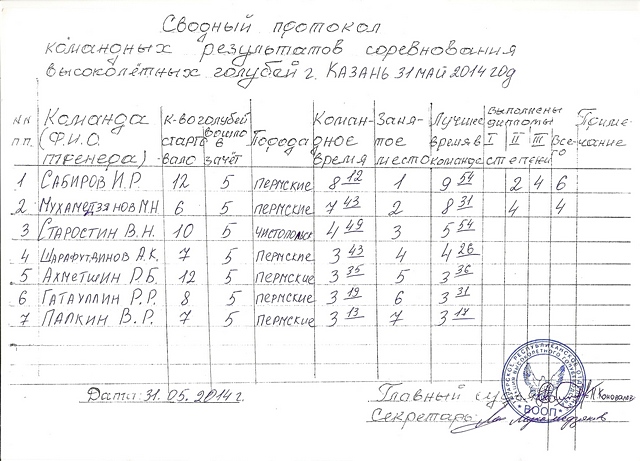 Сводный протокол
командных результатов соревнования
высоколётных голубей г. Казань 31 май 2014 год
NN п.п. Команда (Ф.И.О. тренера) К-во голубей стартовало вошло в зачёт Порода Командное время Занятое место Лучшее время в команде Выполнены дипломы I II III степени Всего Примечание
1 Сабиров И.Р. 12 5 Пермские 8 12 1 9 54 2 4 6
2 Мухаметзянов М.Н 6 5 Пермские 7 43 2 8 31 4 4
3 Старостин В.Н. 10 5 Чистопольск 4 49 3 5 54
4 Шарафутдинов А.К. 7 5 Пермские 3 43 4 4 26
5 Ахметшин Р.Б. 12 5 Пермские 3 35 5 3 36
6 Гатауллин Р.Р. 8 5 Пермские 3 19 6 3 31
7 Палкин В.Р. 7 5 Пермские 3 13 7 3 17
Дата: 31.05.2014 г.
Главный судья Коновалов
Секретарь
ВООП